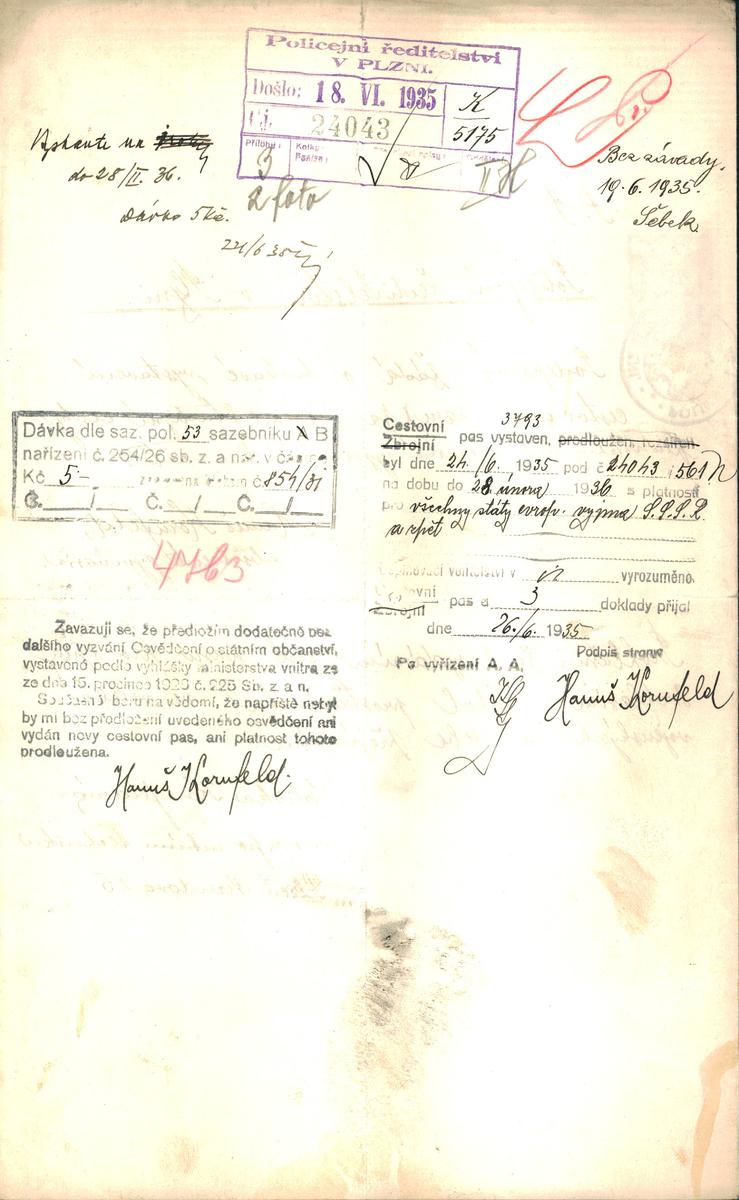 Policejní ředitelství
V PLZNI.
Došlo: 18. VI. 1935
K
5175
Čj. 24043
Přílohy:
3
2 foto
II
do 28/II. 36.
Dávka 5 Kč.
24/6 35
Bez závady.
19.6.1935.
Šebek
Dávka dle saz. pol. 53 sazebníku A B
nařízení č. 254/26 sb. z. a nař. v
Kč 5- č 854/31
Č. / Č. / Č. /
4763
Zavazuji se, že předložím dodatečně bez
dalšího vyzvání Osvědčení o státním občanství,
vystavené podle vyhlášky ministerstva vnitra ze
ze dne 15. prosince 1926 č. 225 Sb. z. a n.
Současně beru na vědomí, že napříště nebyl
by mi bez předložení uvedeného osvědčení ani
vydán nový cestovní pas, ani platnost tohoto
prodloužena.
Hanuš Kornfeld.
3793
Cestovní
Zbrojní pas vystaven, prodloužen, rozšířen
byl dne 24./6. 1935 pod č 24043 / 561
na dobu do 28 února 1936 s platností
pro všechny státy evrop. vyjma S.S.S.R.
a zpět
Doplňovací velitelství v vyrozuměno.
Cestovní
Zbrojní pas a 3 doklady přijal
dne 26./6. 1935
Podpis strany
Po vyřízení A. A.
Hanuš Kornfeld